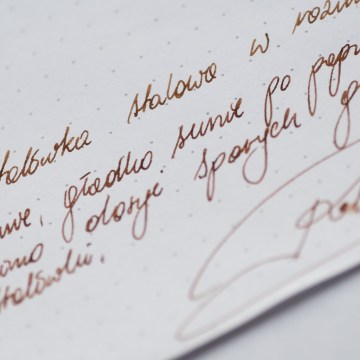 stalówka stalowa w rozmi
we, gładko sunie po papi
ono dosyć sporych g
stalówki.